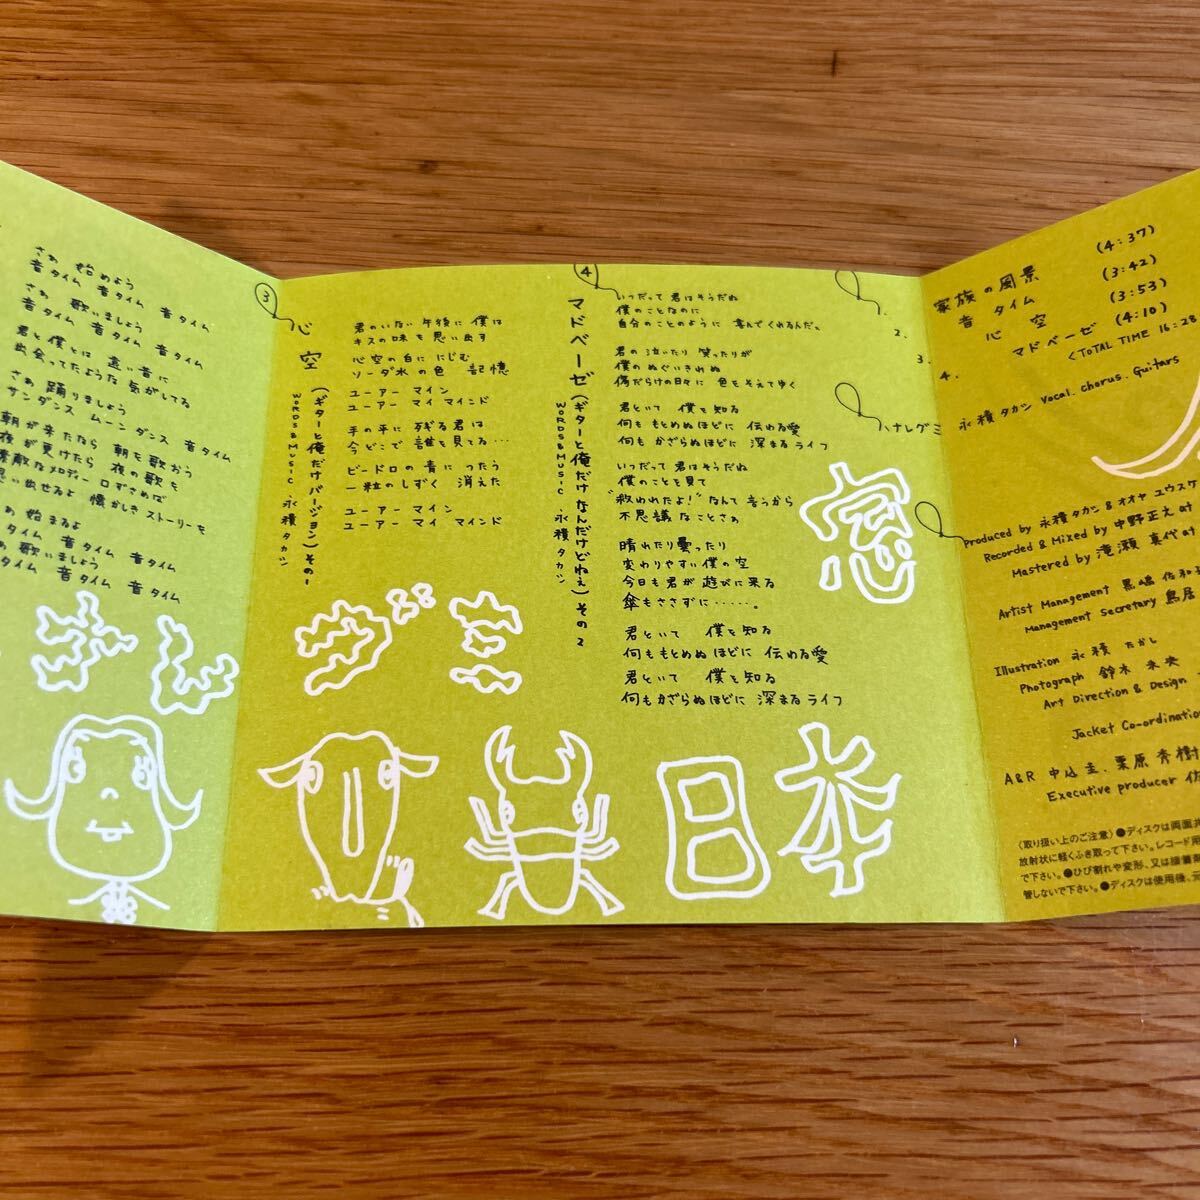 さあ 始めよう
音タイム 音タイム 音タイム
さあ 歌いましょう
音タイム 音タイム 音タイム
君と僕とは 遠い昔に
出会ってたような 気がしてる
さあ 踊りましょう
サンダンス ムーンダンス 音タイム
朝が来たなら 朝を歌おう
夜が更けたら 夜の歌を
素敵なメロディー 口ずさめば
思い出せるよ 懐かしきストーリーを
始まるよ
タイム 音タイム 音タイム
歌いましょう
タイム 音タイム 音タイム
3
心 空 (ギターと俺だけバージョン) その1
WORDS&MUSIC. 永積タカシ
君のいない 午後に 僕は
キスの味も 思い出す
心空の白に にじむ
ソーダ水の色 記憶
ユーアー マイン
ユーアー マイ マインド
手の平に 残る君は
今どこで 誰を見てる…
ビードロの青に つたう
一粒のしずく 消えた
ユーアー マイン
ユーアー マイ マインド
4
マドベーゼ (ギターと俺だけなんだけどねぇ) その2
WORDS&MUSIC. 永積タカシ
いつだって 君はそうだね
僕のことなのに
自分のことのように 喜んでくれるんだ。
君の 泣いたり 笑ったりが
僕の ぬぐいきれぬ
傷だらけの日々に 色をそえてゆく
君といて 僕を知る
何も もとめぬほどに 伝わる愛
何も かざらぬほどに 深まるライフ
いつだって 君はそうだね
僕のことを見て
"救われたよ!"なんて 言うから
不思議なことさぁ
晴れたり 曇ったり
変わりやすい 僕の空
今日も君が 遊びに来る
傘もささずに……。
君といて 僕を知る
何ももとめぬほどに 伝わる愛
君といて 僕を知る
何もかざらぬほどに 深まるライフ
窓
日本
家族の風景 (4:37)
2. 音タイム (3:42)
3. 心 空 (3:53)
4. マドベーゼ (4:10)
<TOTAL TIME 16:28
ハナレグミ
永積タカシ Vocal. chorus. Guitars
Produced by 永積タカシ & オオヤユウスケ
Recorded & Mixed by 中野正之 at
Mastered by 滝瀬真代 at
Artist Management 黒嶋佐和
Management Secretary 鳥居
Illustration 永積 たかし
Photograph 鈴木 未央
Art Direction & Design
Jacket Co-ordination
A&R 中込圭、栗原秀樹
Executive producer 佐
〈取り扱い上のご注意〉●ディスクは両面共
放射状に軽くふき取って下さい。レコード用
で下さい。●ひび割れや変形、又は接着
管しないで下さい。●ディスクは使用後、元